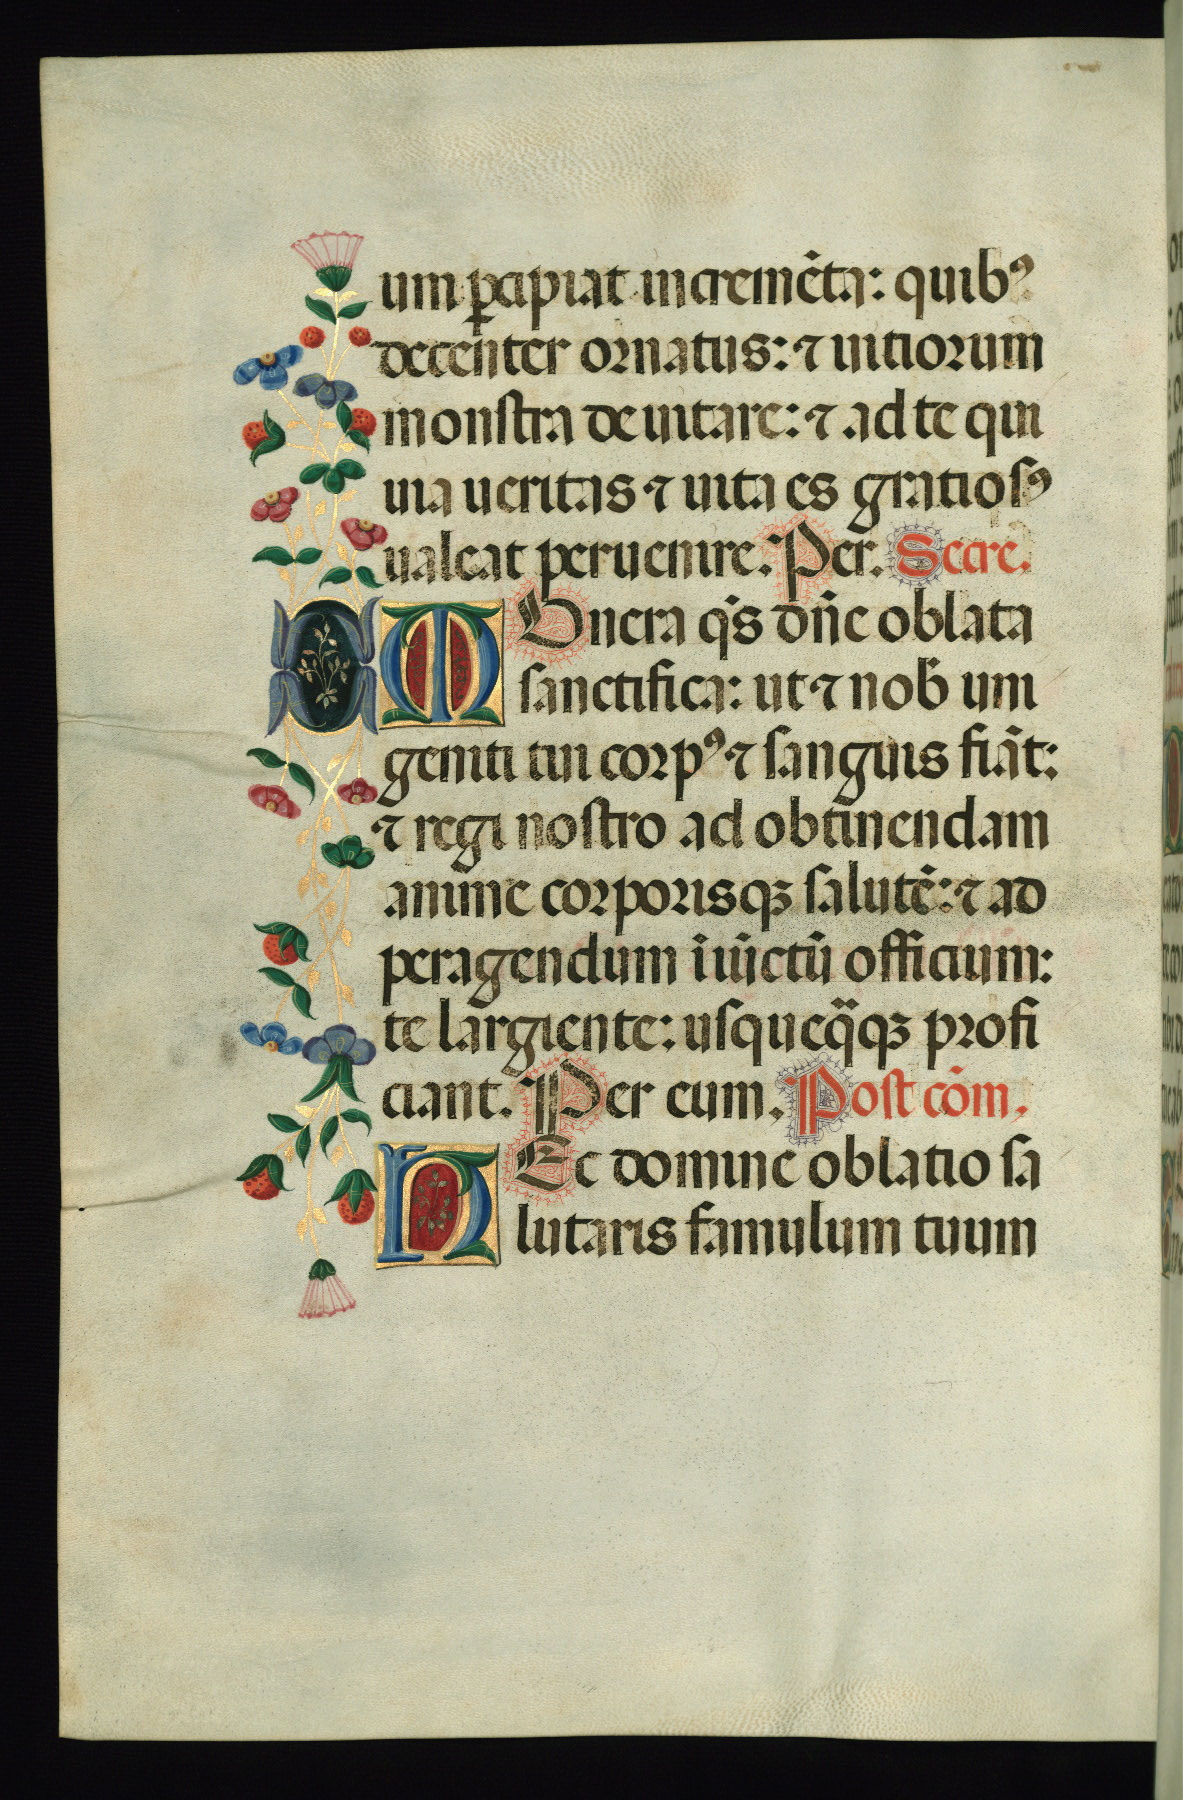 um ꝑcipiat incremẽta: quibꝰ
decenter ornatus: ⁊ uitiorum
monstra deuitare: ⁊ ad te qui
uia ueritas ⁊ uita es gratiosꝰ
ualeat peruenire. Per. Secre.
MUnera q̃s dñe oblata
sanctifica: ut ⁊ nob̃ uni
geniti tui corpꝰ ⁊ sanguis fiãt:
⁊ regi nostro ad obtinendam
anime corporisqꝫ salutẽ: ⁊ ad
peragendum ĩiũctũ officium:
te largiente: usqueqüqꝫ profi
ciant. Per eum. Post cõm.
HEc domine oblatio sa
lutaris famulum tuum